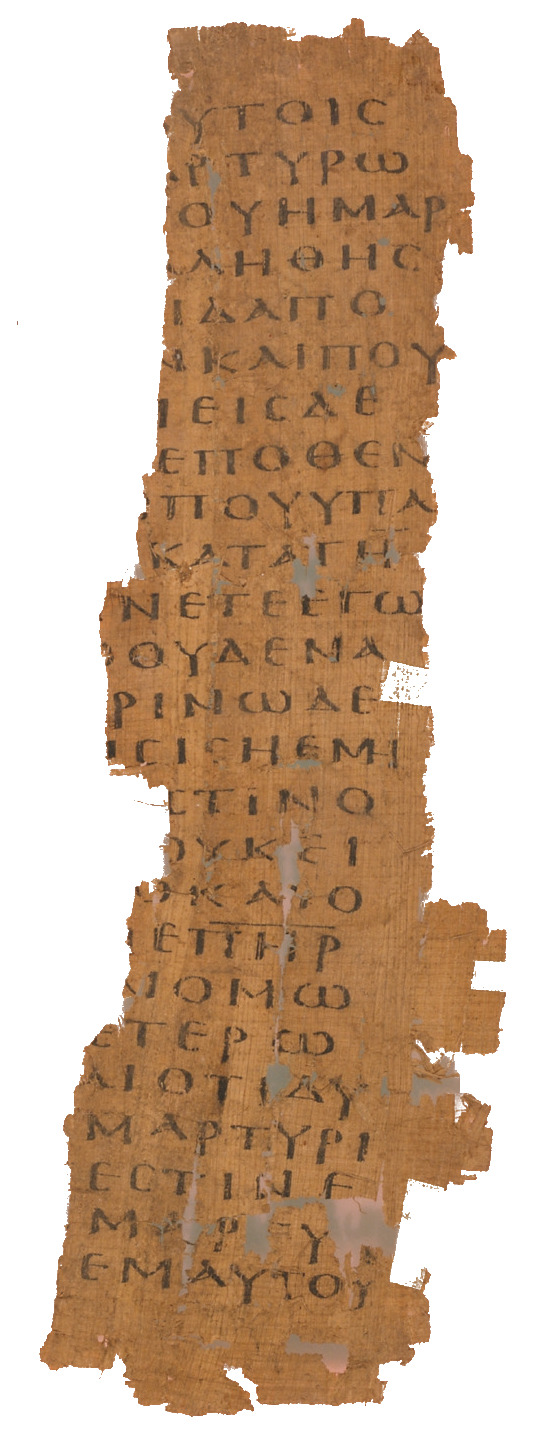 ΥΤΟΙϹ
ΑΡΤΥΡΩ
ΟΥΗΜΑΡ
ΛΗΘΗϹ
ΙΔΑΠΟ
ΝΚΑΙΠΟΥ
ΜΕΙϹΔΕ
ΕΠΟΘΕΝ
ΠΟΥΥΠΑ
ΚΑΤΑΤΗ
ΙΝΕΤΕΕΓΩ
ΟΥΔΕΝΑ
ΡΙΝΩΔΕ
ΙϹΙϹΗΕΜΗ
ϹΤΙΝΟ
ΟΥΚΕΙ
ΩΚΑΙΟ
ΜΕΠ̅Η̅Ρ̅
ΝΟΜΩ
ΕΤΕΡΩ
ΑΙΟΤΙΔΥ
ΜΑΡΤΥΡΙ
ΕϹΤΙΝΕ
ΜΑΡΤΥ
ΕΜΑΥΤΟΥ